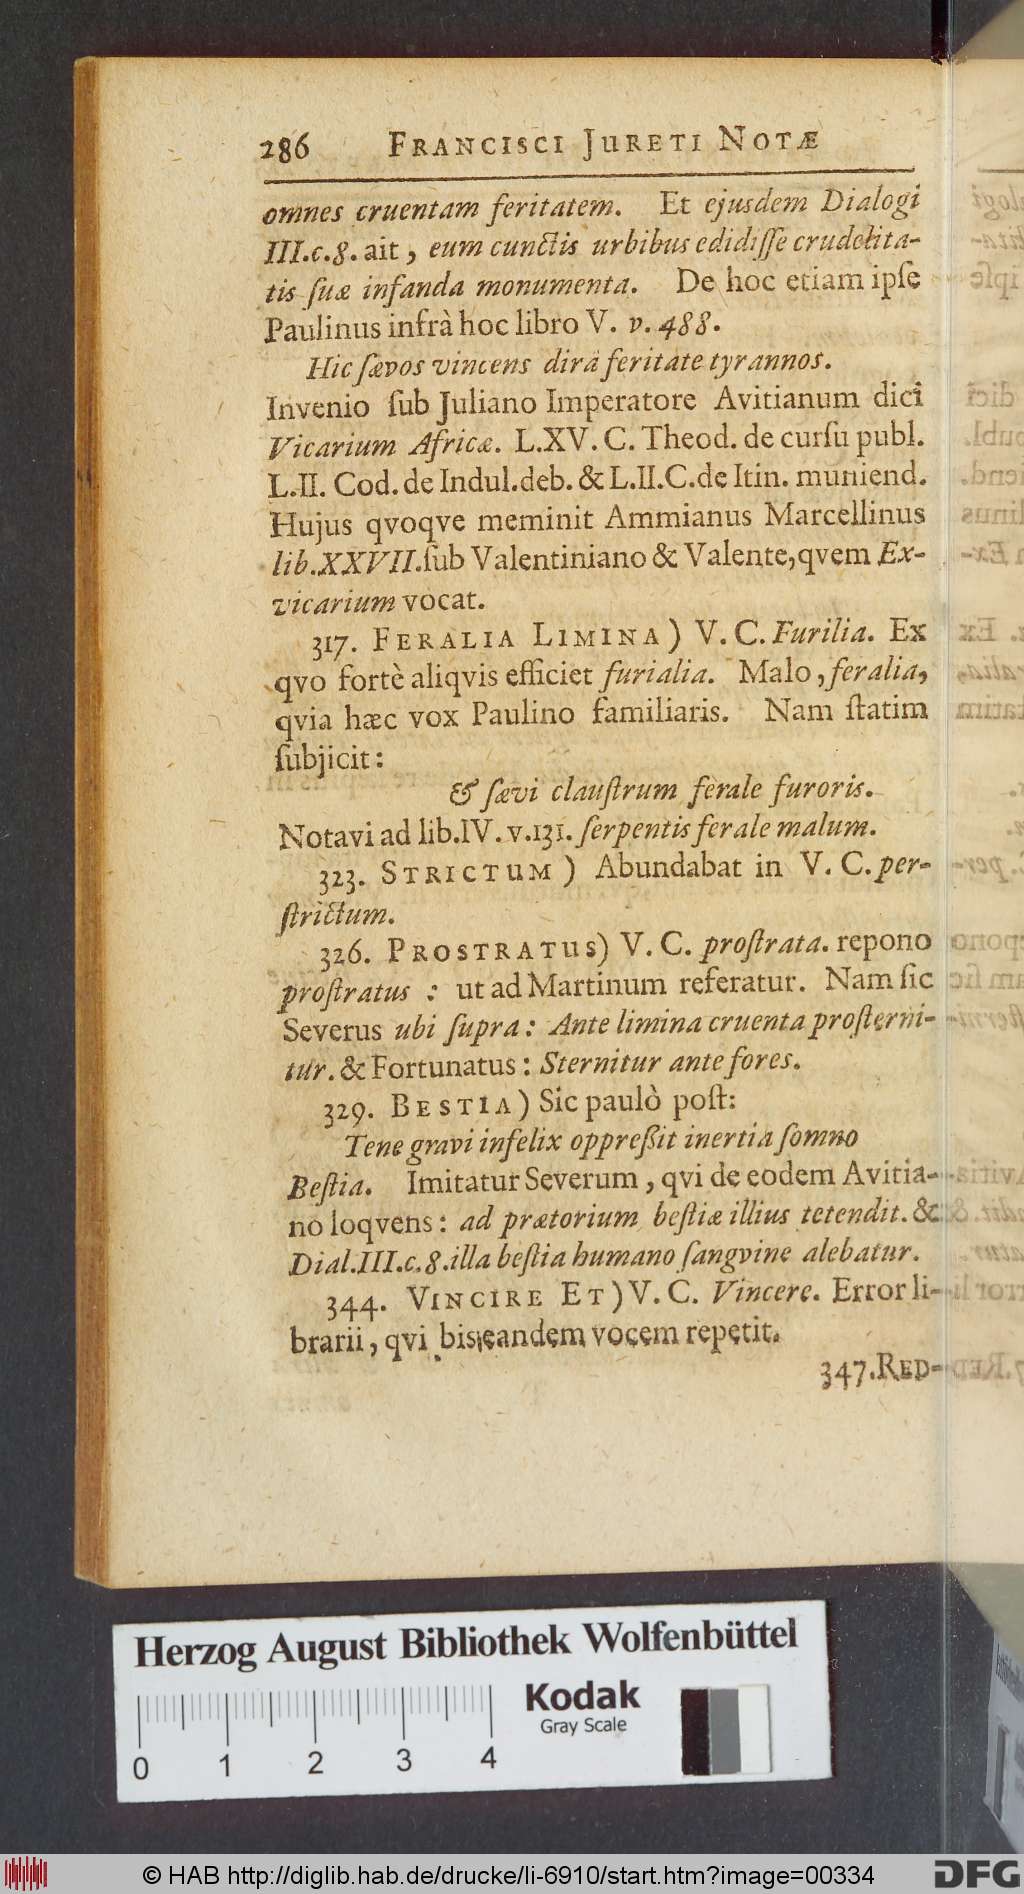 286 FRANCISCI JURETI NOTÆ
omnes cruentam feritatem. Et ejusdem Dialogi
III.c.8. ait, eum cunctis urbibus edidiſſe crudelita-
tis ſuæ infanda monumenta. De hoc etiam ipſe
Paulinus infrà hoc libro V. v. 488.
Hic ſævos vincens dirâ feritate tyrannos.
Invenio ſub Juliano Imperatore Avitianum dici
Vicarium Africæ. L.XV. C. Theod. de curſu publ.
L.II. Cod. de Indul.deb. & L.II.C.de Itin. muniend.
Hujus qvoqve meminit Ammianus Marcellinus
lib.XXVII.ſub Valentiniano & Valente, qvem Ex-
vicarium vocat.
317. FERALIA LIMINA) V. C. Furilia. Ex
qvo fortè aliqvis efficiet furialia. Malo, feralia,
qvia hæc vox Paulino familiaris. Nam ſtatim
ſubjicit:
& ſævi clauſtrum ferale furoris.
Notavi ad lib.IV. v.131. ſerpentis ferale malum.
323. STRICTUM) Abundabat in V. C. per-
ſtrictum.
326. PROSTRATUS) V. C. proſtrata. repono
proſtratus : ut ad Martinum referatur. Nam ſic
Severus ubi ſupra: Ante limina cruenta proſterni-
tur. & Fortunatus: Sternitur ante fores.
329. BESTIA) Sic paulò poſt:
Tene gravi infelix oppreßit inertia ſomno
Beſtia. Imitatur Severum, qvi de eodem Avitia-
no loqvens: ad prætorium beſtiæ illius tetendit. &
Dial.III.c.8.illa beſtia humano ſangvine alebatur.
344. VINCIRE ET) V. C. Vincere. Error li-
brarii, qvi bis eandem vocem repetit.
347. RED-
Herzog August Bibliothek Wolfenbüttel
Kodak
Gray Scale
0 1 2 3 4
© HAB http://diglib.hab.de/drucke/li-6910/start.htm?image=00334
DFG